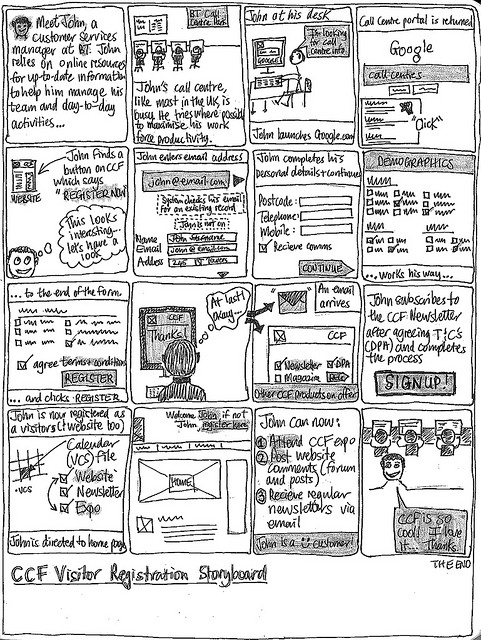 Meet John, a
customer services
manager at BT. John
relies on online resources
for up-to-date information
to help him manage his
team and day-to-day
activities...
BT Call
Centre
John's call centre,
like most in the UK is
busy. He tries where possible
to maximise his work
force productivity.
John at his desk
I'm looking
for call
centre info
GOOGLE
John launches Google.com
Call Centre portal is returned
Google
call centres
"Click"
WEBSITE
John finds a
button on CCF
which says
"REGISTER NOW"
This looks
interesting...
let's have a
look
John enters email address
john@email.com
System checks his email
for an existing record
John is not on
Name John Surname
Email John@email.com
Address
John completes his
personal details + continues
Postcode:
Telephone:
Mobile:
Recieve comms
CONTINUE
DEMOGRAPHICS
...works his way...
...to the end of the form.
agree terms + conditions
REGISTER
... and clicks REGISTER
CCF
Thanks!
At last!
Okay...
An email
arrives
CCF
Newsletter
DPA
Magazine
Other CCF products on offer
John subscribes to
the CCF Newsletter
after agreeing T&C's
(DPA) and completes
the process
SIGNUP!
John is now registered as
a visitors (+ website too)
Calendar
(VCS) file
.vcs
Website
Newsletter
Expo
John's directed to home page
Welcome John, if not
John, register here
HOME
John can now:
1 Attend CCF expo
2 Post website
comments (forum
and posts)
3 Recieve regular
newsletters via
email
John is a customer!
CCF is so
cool! I love
it... Thanks.
THE END
CCF Visitor Registration Storyboard